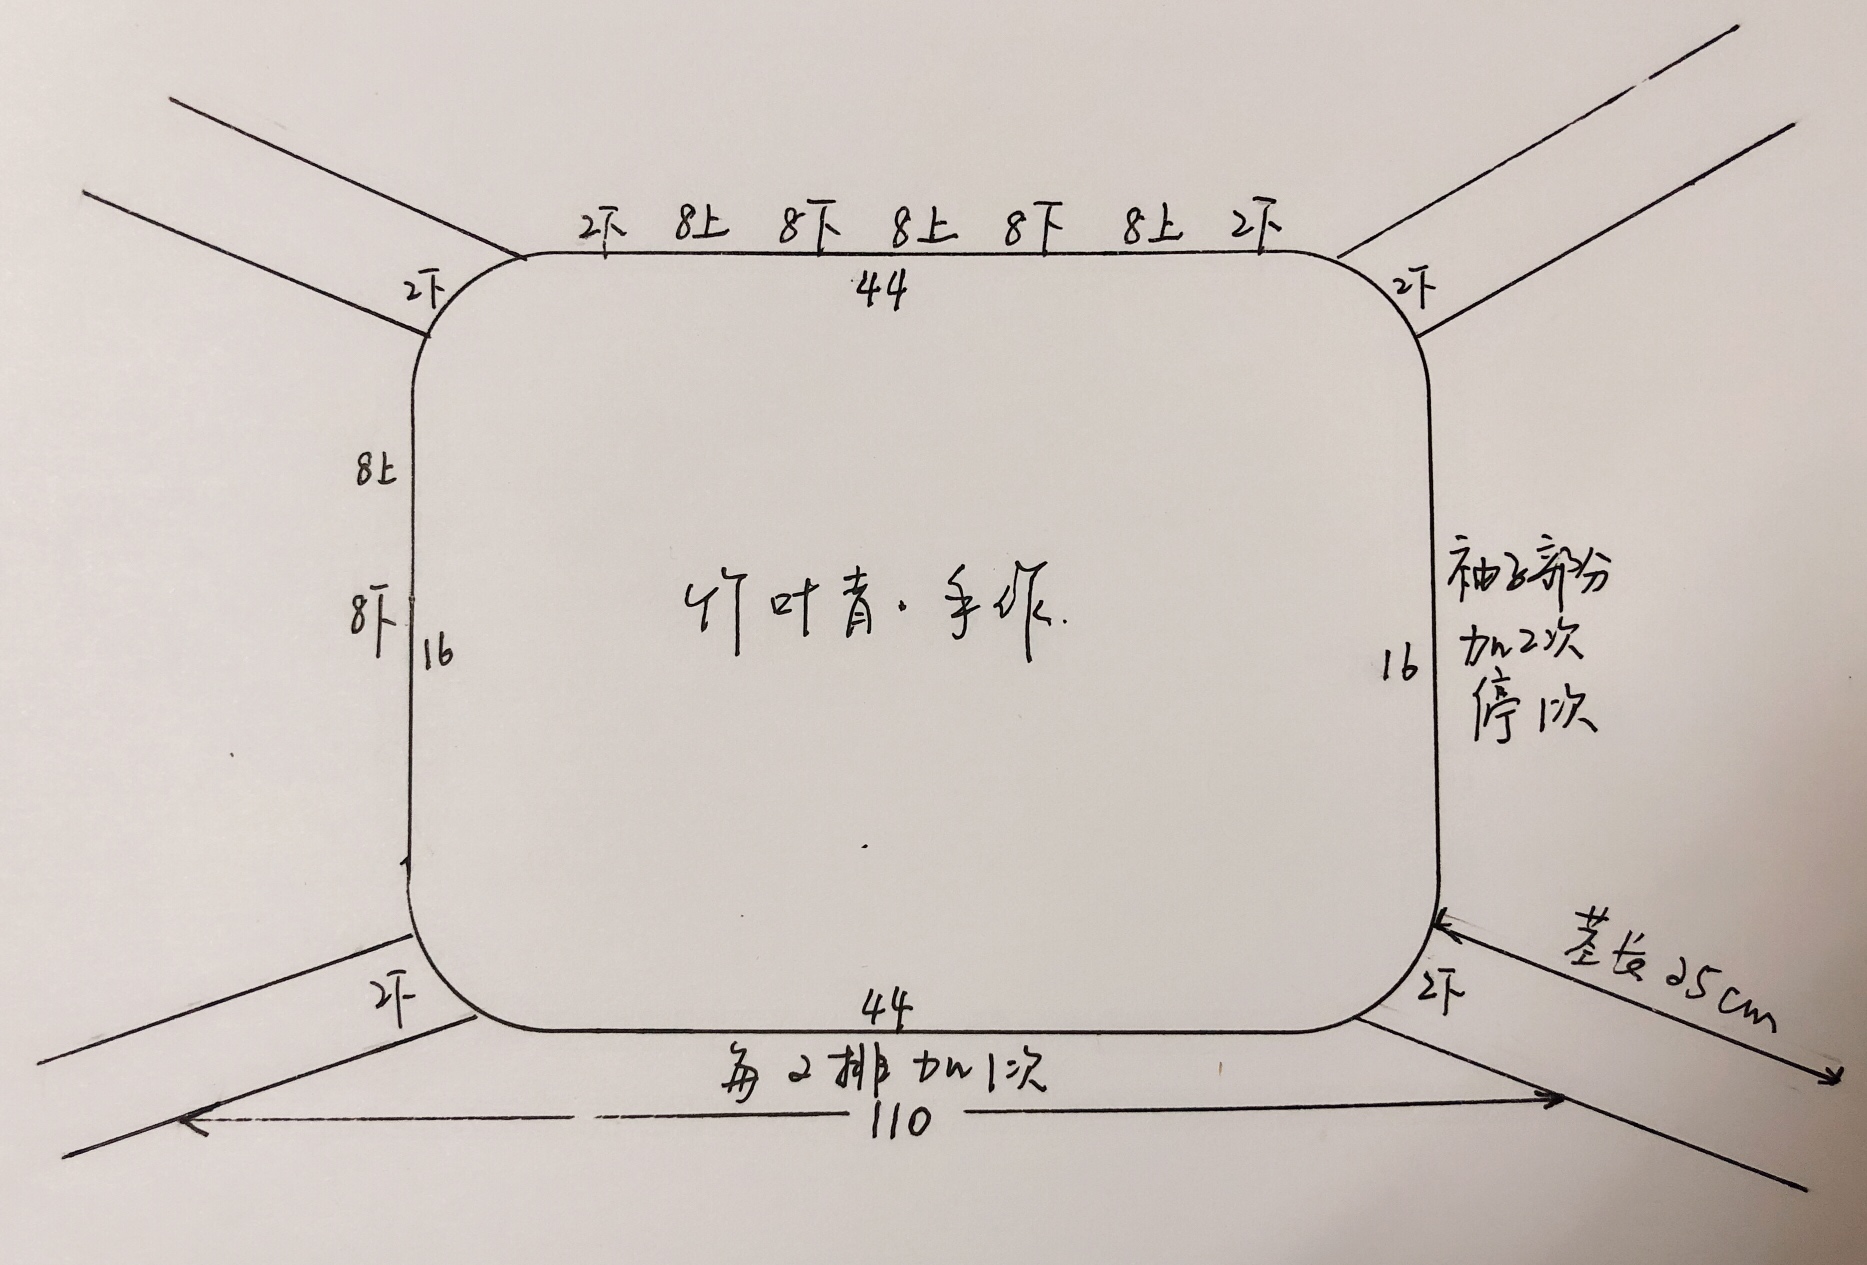 2下 8上 8下 8上 8下 8上 2下
44
2下
2下
8上
8下
16
竹叶青·手作.
16
袖子部分
加2次
停1次
2下
44
2下
茎长25cm
每2排加1次
110